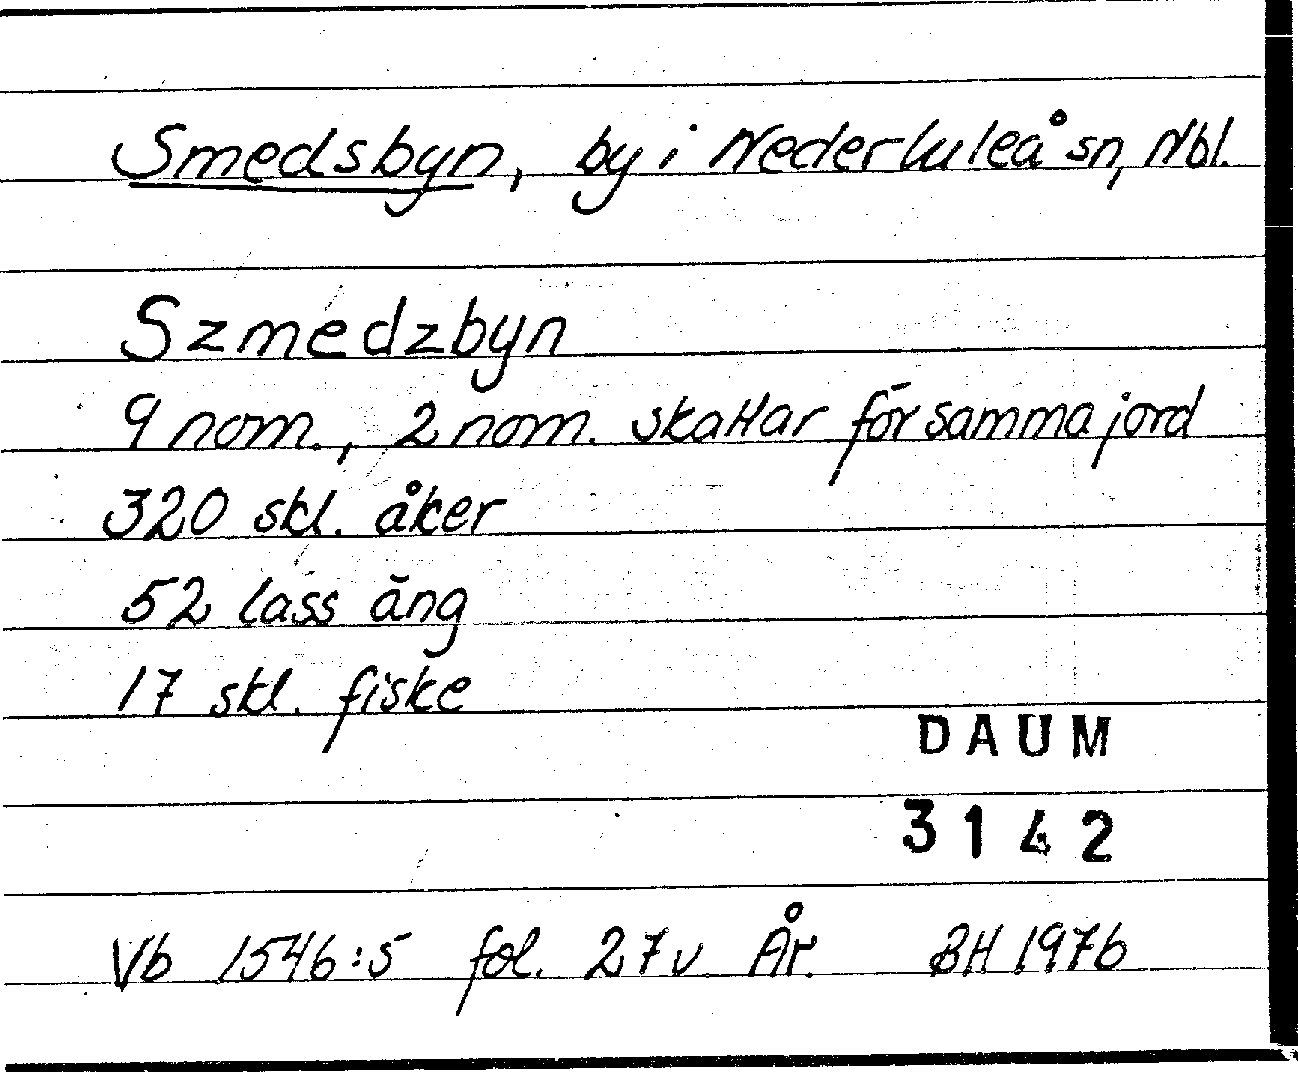 Smedsbyn, by i Nederluleå sn, Nbl.
Szmedzbyn
9 nom., 2 nom. skattar för samma jord
320 skl. åker
52 lass äng
17 skl. fiske
DAUM
3142
Vb 1546:5 fol. 27v År. BH 1976